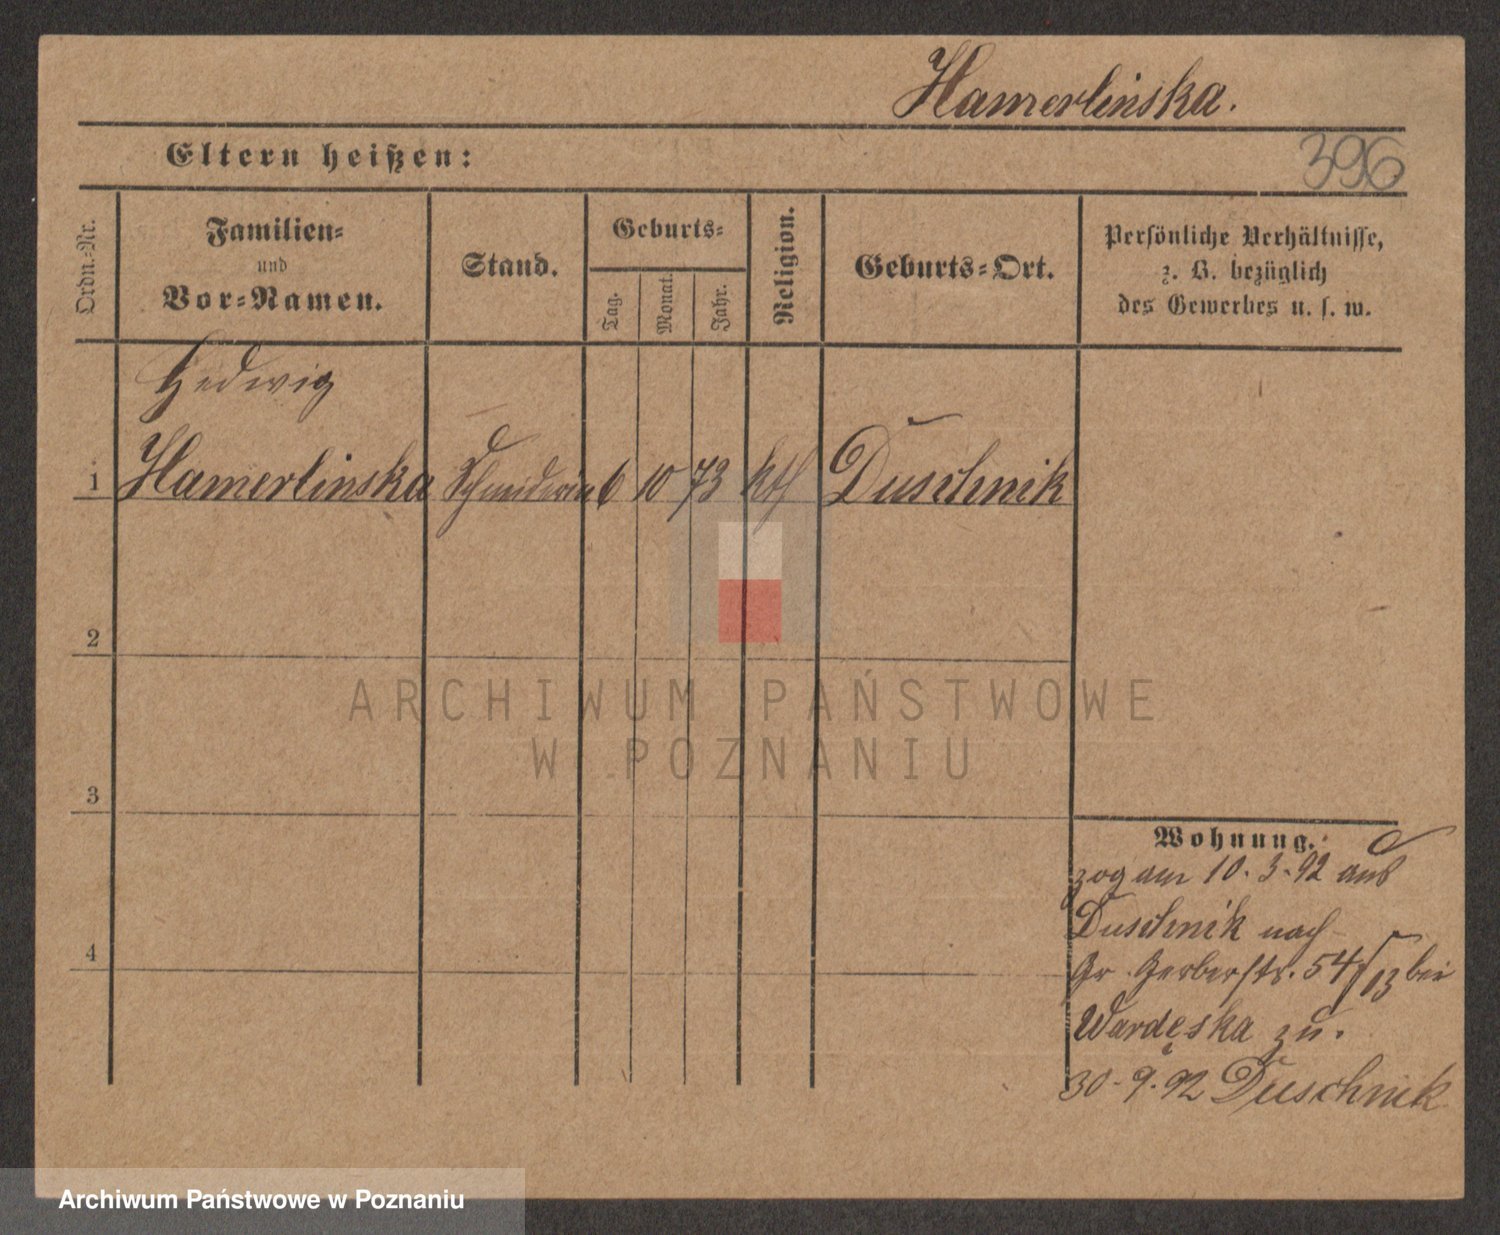 Hamerlinska.
Eltern heißen:
396
Ordn.-Nr.
Familien-
und
Vor-Namen.
Stand.
Geburts-
Tag.
Monat.
Jahr.
Religion.
Geburts-Ort.
Persönliche Verhältnisse,
z. B. bezüglich
des Gewerbes u. s. w.
Hedwig
1 Hamerlinska Schneiderin 6 10 73 kth Duschnik
2
3
4
Wohnung.
zog am 10.3.92 aus
Duschnik nach
Gr. Gerberstr. 54 bei
Wardęska zu.
30-9-92 Duschnik
ARCHIWUM PAŃSTWOWE
W POZNANIU
Archiwum Państwowe w Poznaniu